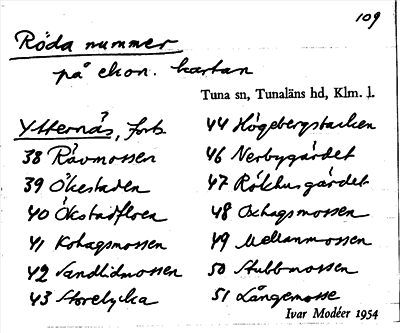 109
Röda nummer
på ekon. kartan
Tuna sn, Tunaläns hd, Klm. l.
Ytternäs, forts.
38 Rävmossen
39 Ökestaden
40 Ökstadfloen
41 Kohagsmossen
42 Sandlidmossen
43 Storelycka
44 Högebergsbacken
46 Nerbygärdet
47 Rökhusgärdet
48 Oxhagsmossen
49 Mellanmossen
50 Stubbmossen
51 Långemosse
Ivar Modéer 1954